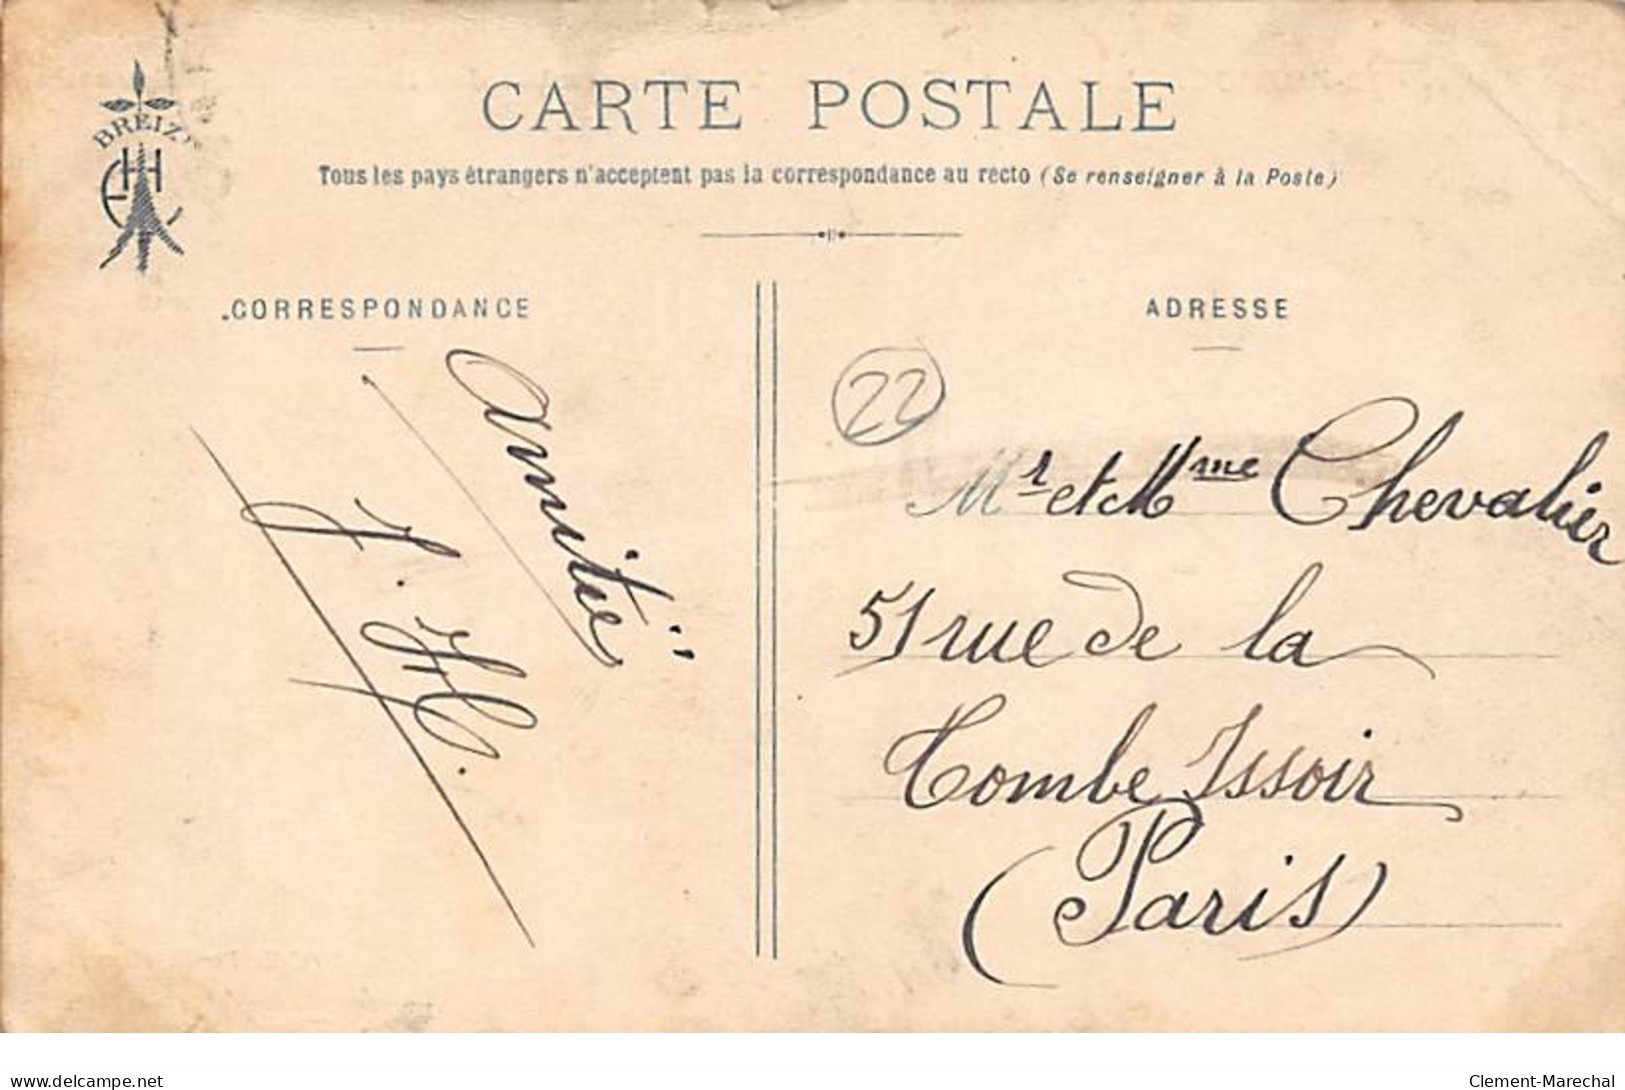 BREIZ
CARTE POSTALE
Tous les pays étrangers n'acceptent pas la correspondance au recto (Se renseigner à la Poste)
CORRESPONDANCE
amitié
J. H.
ADRESSE
22
Mr et Mme Chevalier
51 rue de la
Tombe Issoir
(Paris)
delcampe.net
Clement-Marechal